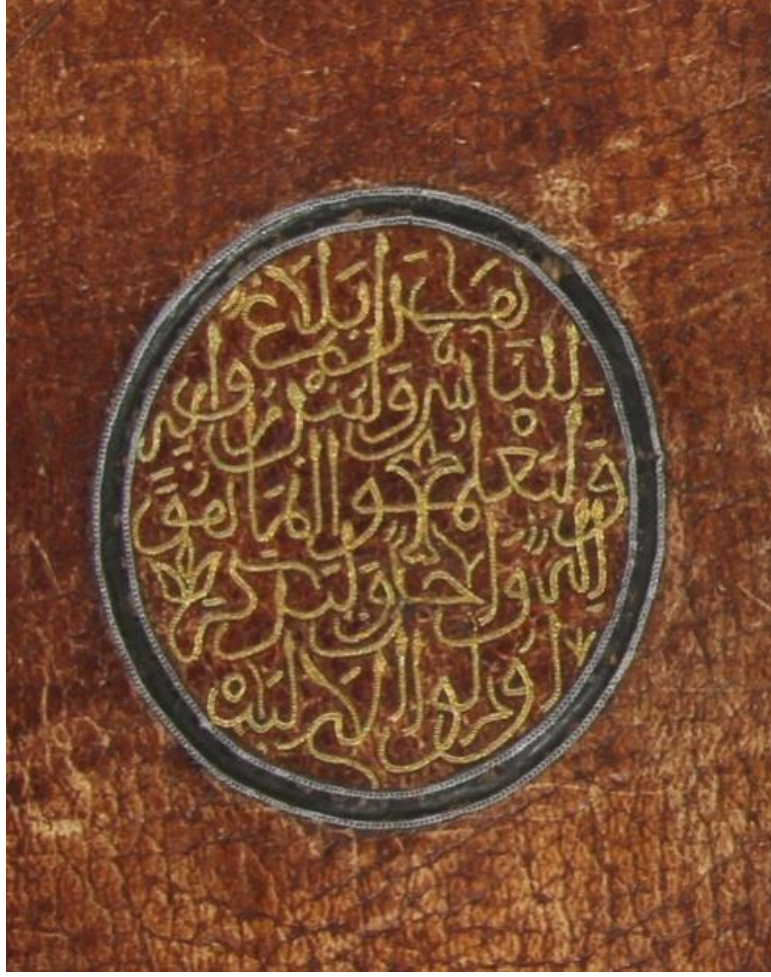 هذا بلاغ
للناس ولينذروا به
وليعلموا انما هو
اله واحد وليذكر
اولوا الالباب